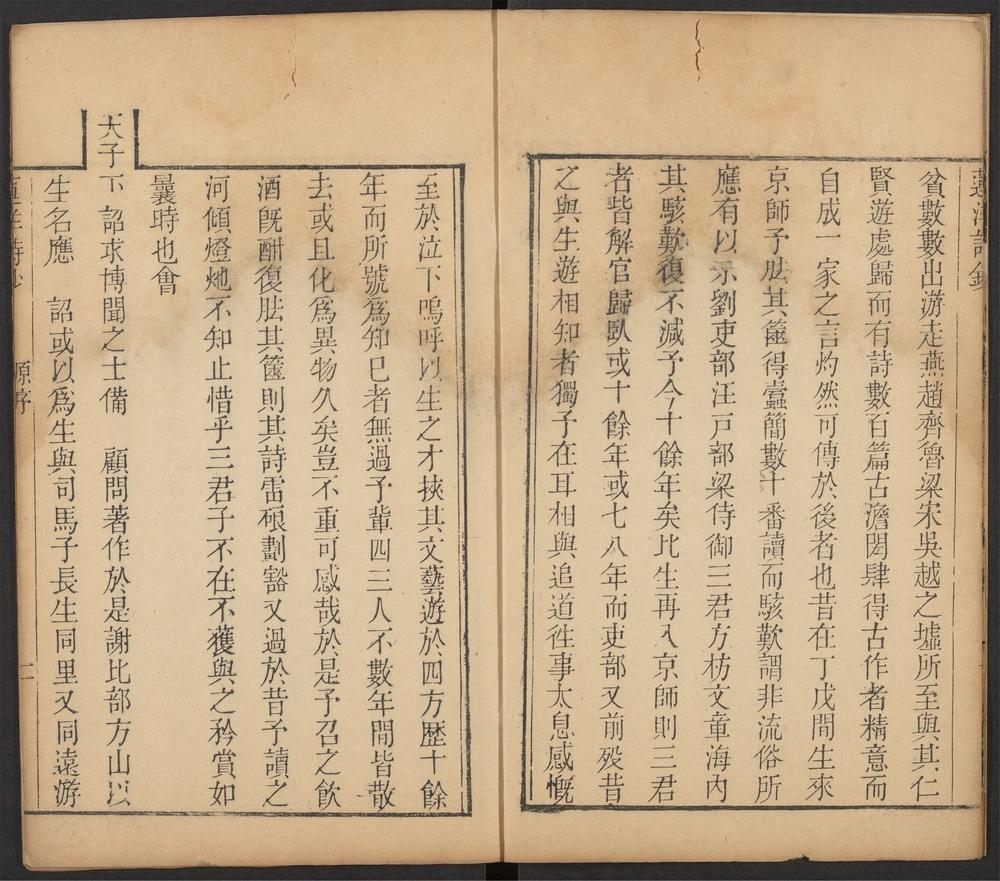 貧數數出游走燕趙齊魯梁宋吳越之墟所至與其仁
賢遊處歸而有詩數百篇古澹閎肆得古作者精意而
自成一家之言灼然可傳於後者也昔在丁戊間生來
京師予胠其篋得蠹簡數十番讀而駭歎謂非流俗所
應有以示劉吏部汪戸部梁侍御三君方枋文章海內
其駭歎復不減予今十餘年矣比生再入京師則三君
者皆解官歸臥或十餘年或七八年而吏部又前歿昔
之與生遊相知者獨予在耳相與追道往事太息感慨
至於泣下嗚呼以生之才挾其文藝遊於四方歷十餘
年而所號爲知巳者無過予輩四三人不數年間皆散
去或且化爲異物久矣豈不重可感哉於是予召之飲
酒旣酣復胠其篋則其詩雷硠劃豁又過於昔予讀之
河傾燈灺不知止惜乎三君子不在不獲與之矜賞如
曩時也會
天子下 詔求博聞之士備 顧問著作於是謝比部方山以
生名應 詔或以爲生與司馬子長生同里又同遠游
原序 二